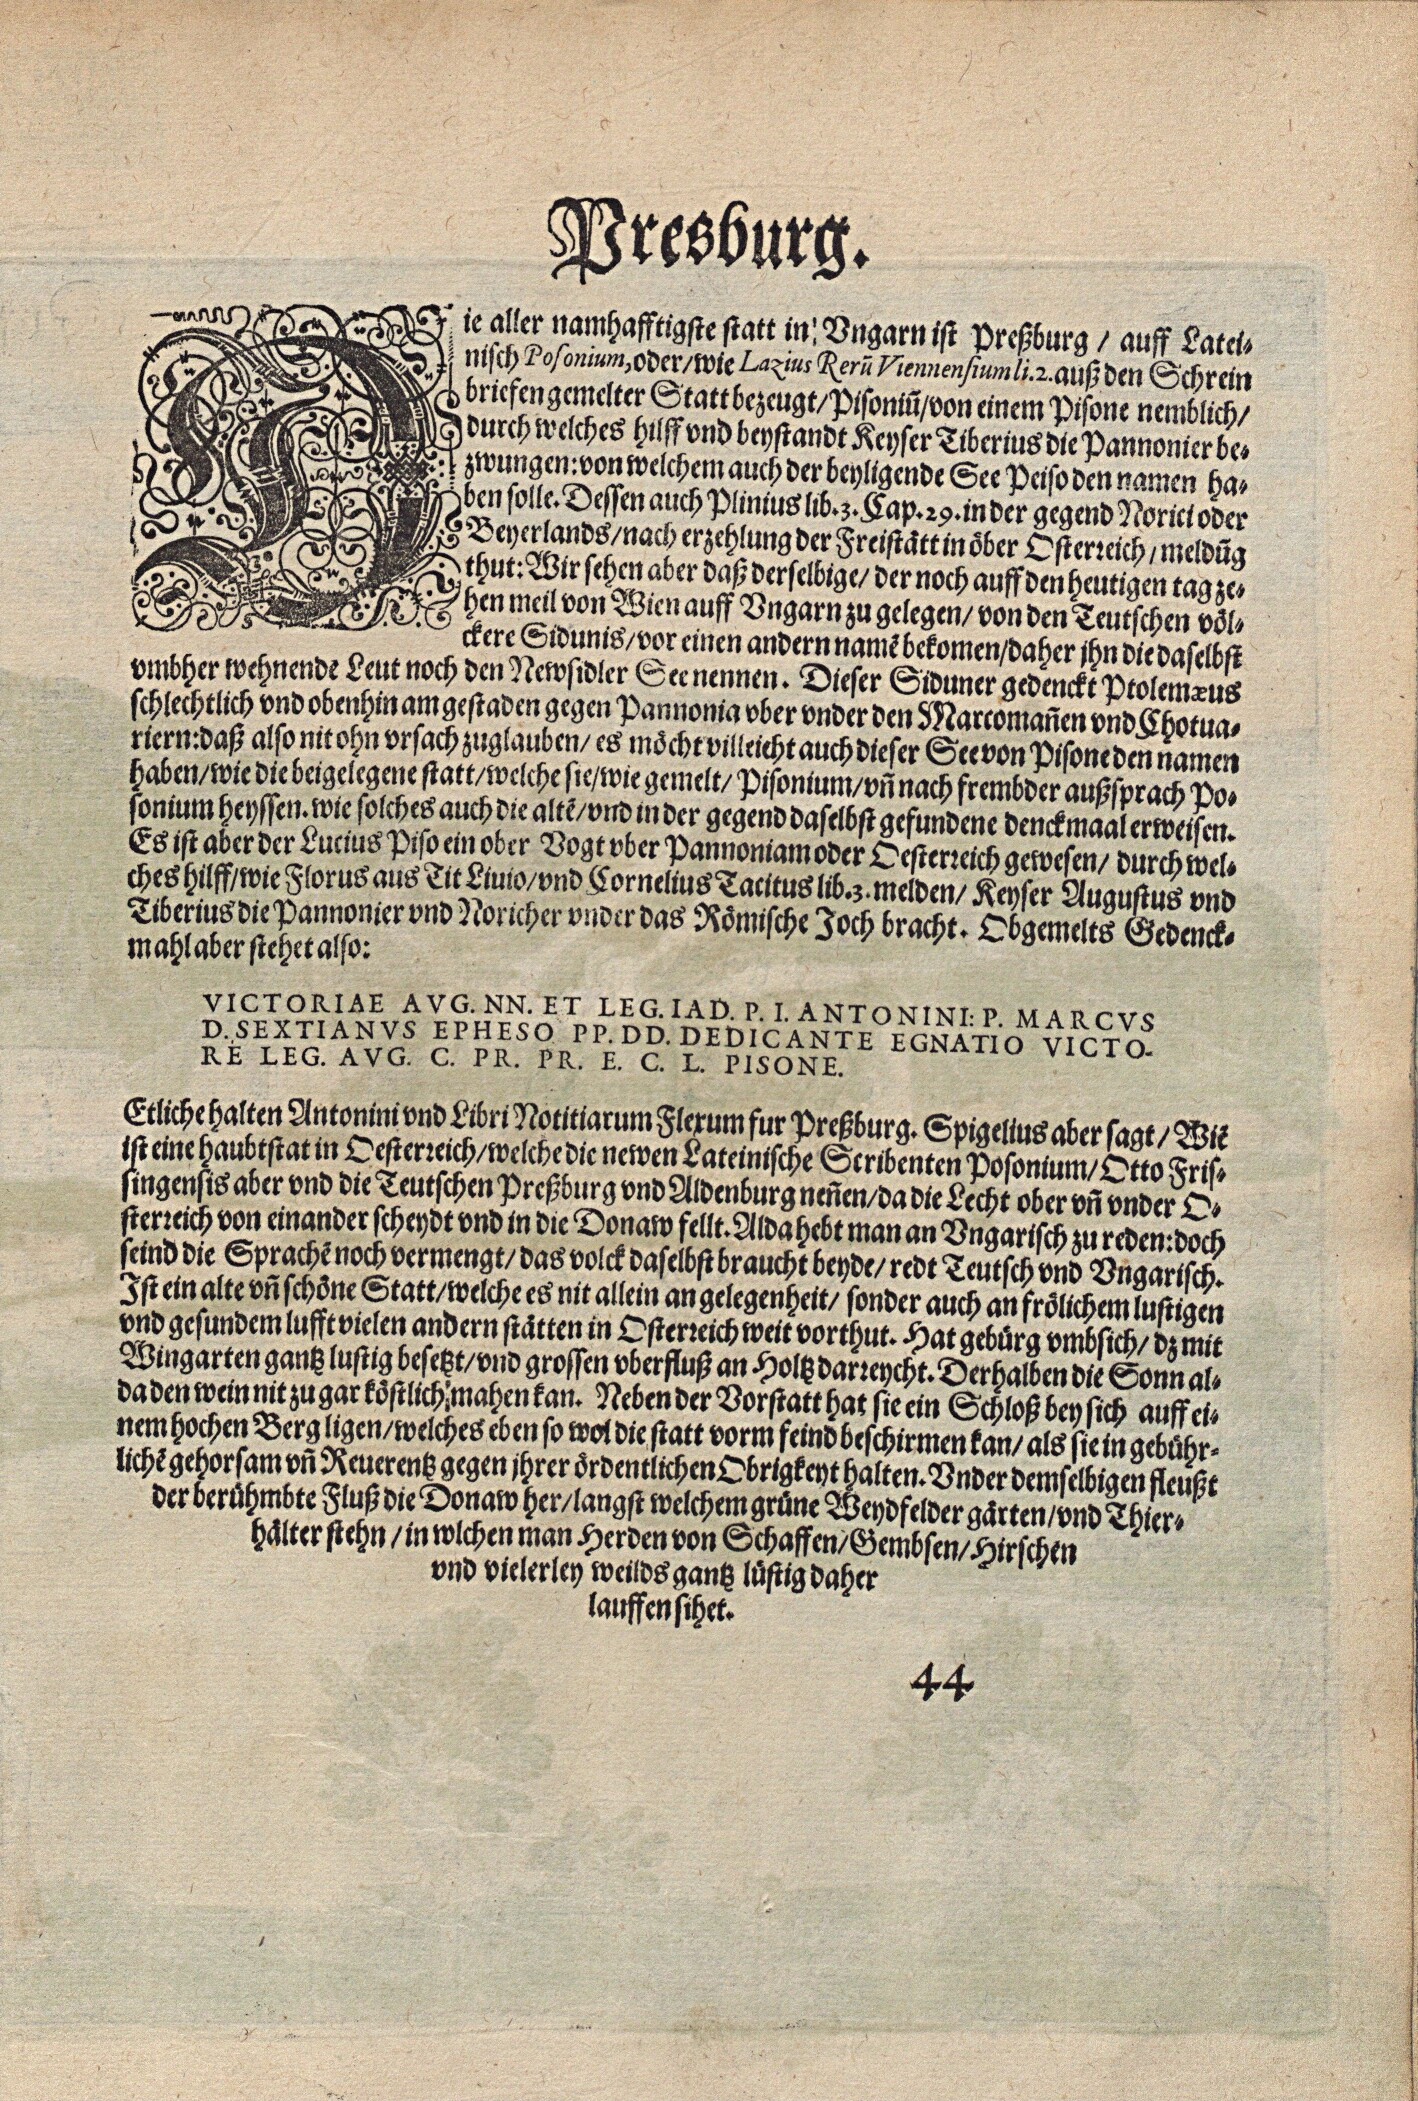 Presburg.
Die aller namhafftigste statt in Vngarn ist Preßburg / auff Latei-
nisch Posonium, oder/wie Lazius Rerū Viennensium li.2. auß den Schrein
briefen gemelter Statt bezeugt/Pisoniū/von einem Pisone nemblich/
durch welches hilff vnd beystandt Keyser Tiberius die Pannonier be-
zwungen: von welchem auch der beyligende See Peiso den namen ha-
ben solle. Dessen auch Plinius lib.3. Cap.29. in der gegend Norici oder
Beyerlands/nach erzehlung der Freistätt in öber Osterreich/meldūg
thut: Wir sehen aber daß derselbige/ der noch auff den heutigen tag ze-
hen meil von Wien auff Vngarn zu gelegen/ von den Teutschen völ-
ckere Sidunis/vor einen andern namē bekomen/daher jhn die daselbst
vmbher wehnende Leut noch den Newsidler See nennen. Dieser Siduner gedenckt Ptolemæus
schlechtlich vnd obenhin am gestaden gegen Pannonia vber vnder den Marcomañen vnd Chotua-
riern: daß also nit ohn vrsach zuglauben/ es möcht villeicht auch dieser See von Pisone den namen
haben/wie die beigelegene statt/welche sie/wie gemelt/ Pisonium/vñ nach frembder außsprach Po-
sonium heyssen. wie solches auch die altē/vnd in der gegend daselbst gefundene denckmaal erweisen.
Es ist aber der Lucius Piso ein ober Vogt vber Pannoniam oder Oesterreich gewesen/ durch wel-
ches hilff/wie Florus aus Tit Liuio/vnd Cornelius Tacitus lib.3. melden/ Keyser Augustus vnd
Tiberius die Pannonier vnd Noricher vnder das Römische Joch bracht. Obgemelts Gedenck-
mahl aber stehet also:
VICTORIAE AVG. NN. ET LEG. IAD. P. I. ANTONINI: P. MARCVS
D. SEXTIANVS EPHESO PP. DD. DEDICANTE EGNATIO VICTO-
RE LEG. AVG. C. PR. PR. E. C. L. PISONE.
Etliche halten Antonini vnd Libri Notitiarum Flexum fur Preßburg. Spigelius aber sagt/ Wiē
ist eine haubtstat in Oesterreich/welche die newen Lateinische Scribenten Posonium/Otto Fris-
singensis aber vnd die Teutschen Preßburg vnd Aldenburg neñen/da die Lecht ober vñ vnder O-
sterreich von einander scheydt vnd in die Donaw fellt. Alda hebt man an Vngarisch zu reden: doch
seind die Sprachē noch vermengt/ das volck daselbst braucht beyde/ redt Teutsch vnd Vngarisch.
Ist ein alte vñ schöne Statt/welche es nit allein an gelegenheit/ sonder auch an frölichem lustigen
vnd gesundem lufft vielen andern stätten in Osterreich weit vorthut. Hat gebürg vmbsich/ dz mit
Wingarten gantz lustig besetzt/vnd grossen vberfluß an Holtz darreycht. Derhalben die Sonn al-
da den wein nit zu gar köstlich mahen kan. Neben der Vorstatt hat sie ein Schloß bey sich auff ei-
nem hochen Berg ligen/welches eben so wol die statt vorm feind beschirmen kan/ als sie in gebühr-
lichē gehorsam vñ Reuerentz gegen jhrer ördentlichen Obrigkeyt halten. Vnder demselbigen fleußt
der berühmbte Fluß die Donaw her/langst welchem grüne Weydfelder gärten/vnd Thier-
hälter stehn/in wlchen man Herden von Schaffen/Gembsen/Hirschen
vnd vielerley weilds gantz lüstig daher
lauffen sihet.
44